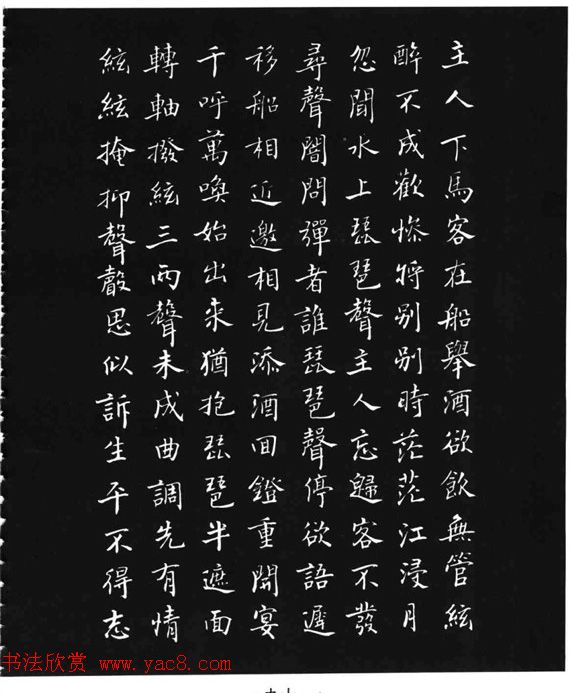 主人下馬客在船舉酒欲飲無管絃
醉不成歡慘將别别時茫茫江浸月
忽聞水上琵琶聲主人忘歸客不發
尋聲闇問彈者誰琵琶聲停欲語遲
移船相近邀相見添酒回鐙重開宴
千呼萬喚始出來猶抱琵琶半遮面
轉軸撥絃三兩聲未成曲調先有情
絃絃掩抑聲聲思似訴生平不得志
书法欣赏 www.yac8.com